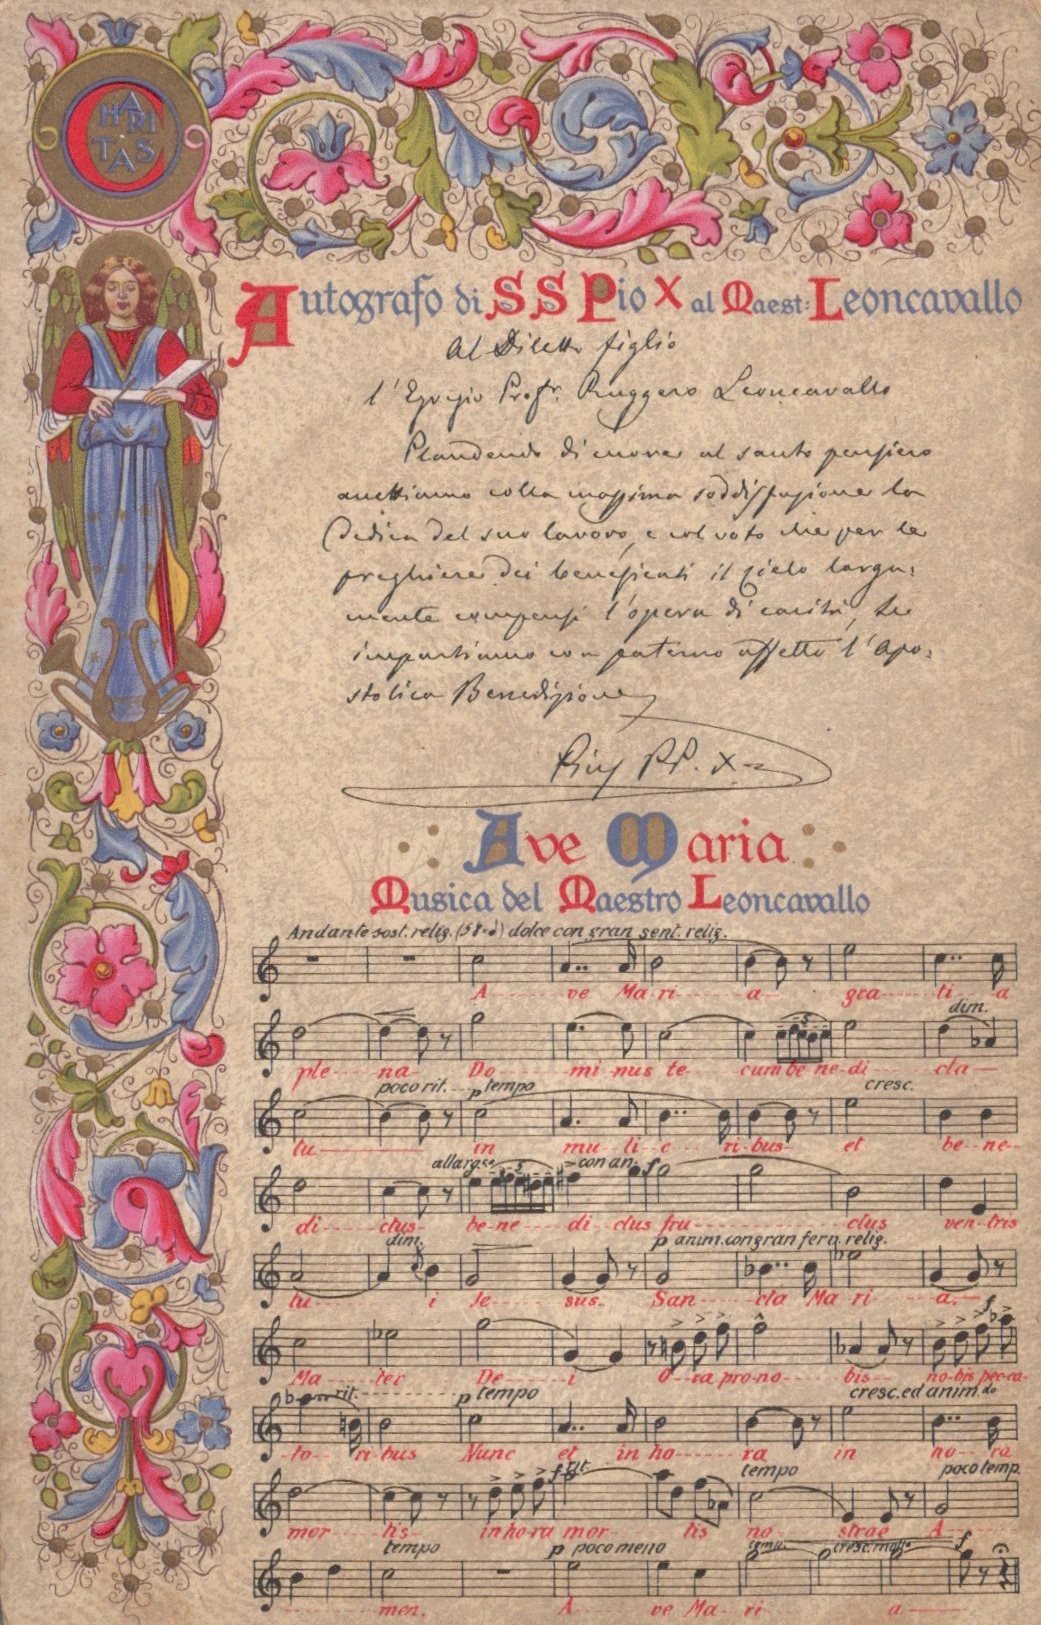 CHARITAS
Autografo di SS Pio X al Maest: Leoncavallo
Al Diletto figlio
l'Egregio Profr. Ruggero Leoncavallo
Plaudendo di cuore al santo pensiero
accettiamo colla massima soddisfazione la
Dedica del suo lavoro, e col voto che per le
preghiere dei beneficati il Cielo larga=
mente compensi l'opera di carità, Le
impartiamo con paterno affetto l'Apo=
stolica Benedizione
Pius PP. X
Ave Maria
Musica del Maestro Leoncavallo
Andante sost. relig. (58=♩) dolce con gran sent. relig.
A ve Ma ri a gra ti a
dim.
ple na Do mi nus te cum be ne di cta
poco rit. p tempo cresc.
tu in mu li e ri bus et be ne
con an. f
di ctus be ne di ctus fru ctus ven tris
dim. p anim. con gran ferv. relig.
tu i Je sus. San cta Ma ri a.
f
Ma ter De i o ra pro no bis no bis pec ca
rit. p tempo cresc. ed anim.do
to ri bus Nunc et in ho ra in ho ra
tempo poco temp.
mor tis in ho ra mor tis no strae A
tempo p poco meno cresc. molto f
men. A ve Ma ri a